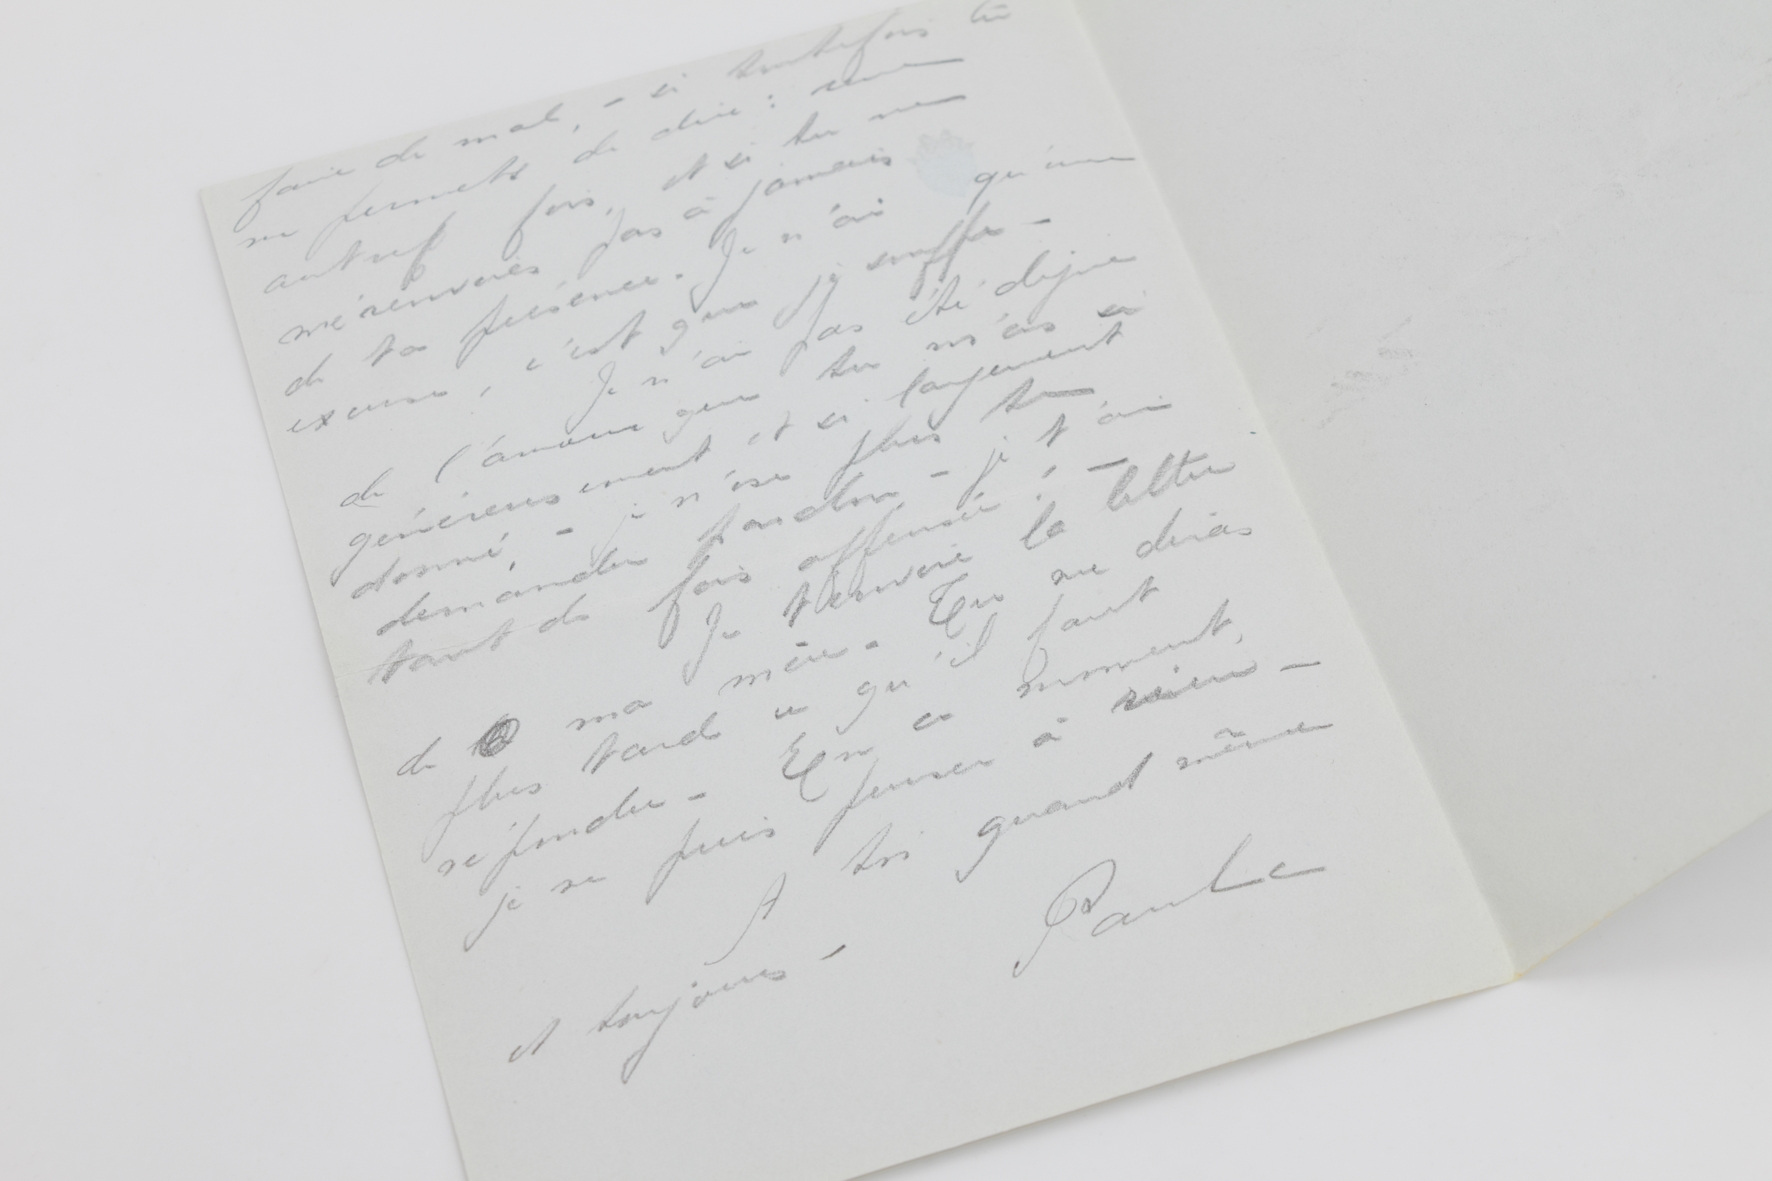 faire de mal, - si toutefois tu
me permets de dire : une
autre fois, et si tu ne
m'éxenvoies pas à jamais
de ta présence. Je n'ai qu'une
excuse, c'est que je souffre -
Je n'ai pas été digne
de l'amour que tu m'as si
généreusement et si largement
donné, - je n'ose plus te
demander pardon - je t'ai
tant de fois offensé ! -
Je t'envoie la lettre
de ma mère - Tu me diras
plus tard ce qu'il faut
répondre - En ce moment,
je ne puis penser à rien -
A toi quand même
et toujours -
Paule